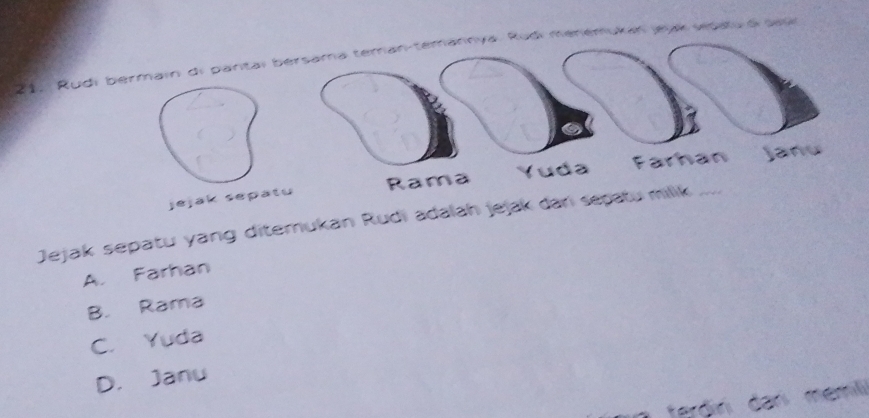 21. Rudi bermain di pantai bersama teman-temannya. Rudi menemukan jejak sepatu di
jejak sepatu
Rama
Yuda
Farhan
Janu
Jejak sepatu yang ditemukan Rudi adalah jejak dari sepatu milik ....
A. Farhan
B. Rama
C. Yuda
D. Janu
terdiri dari